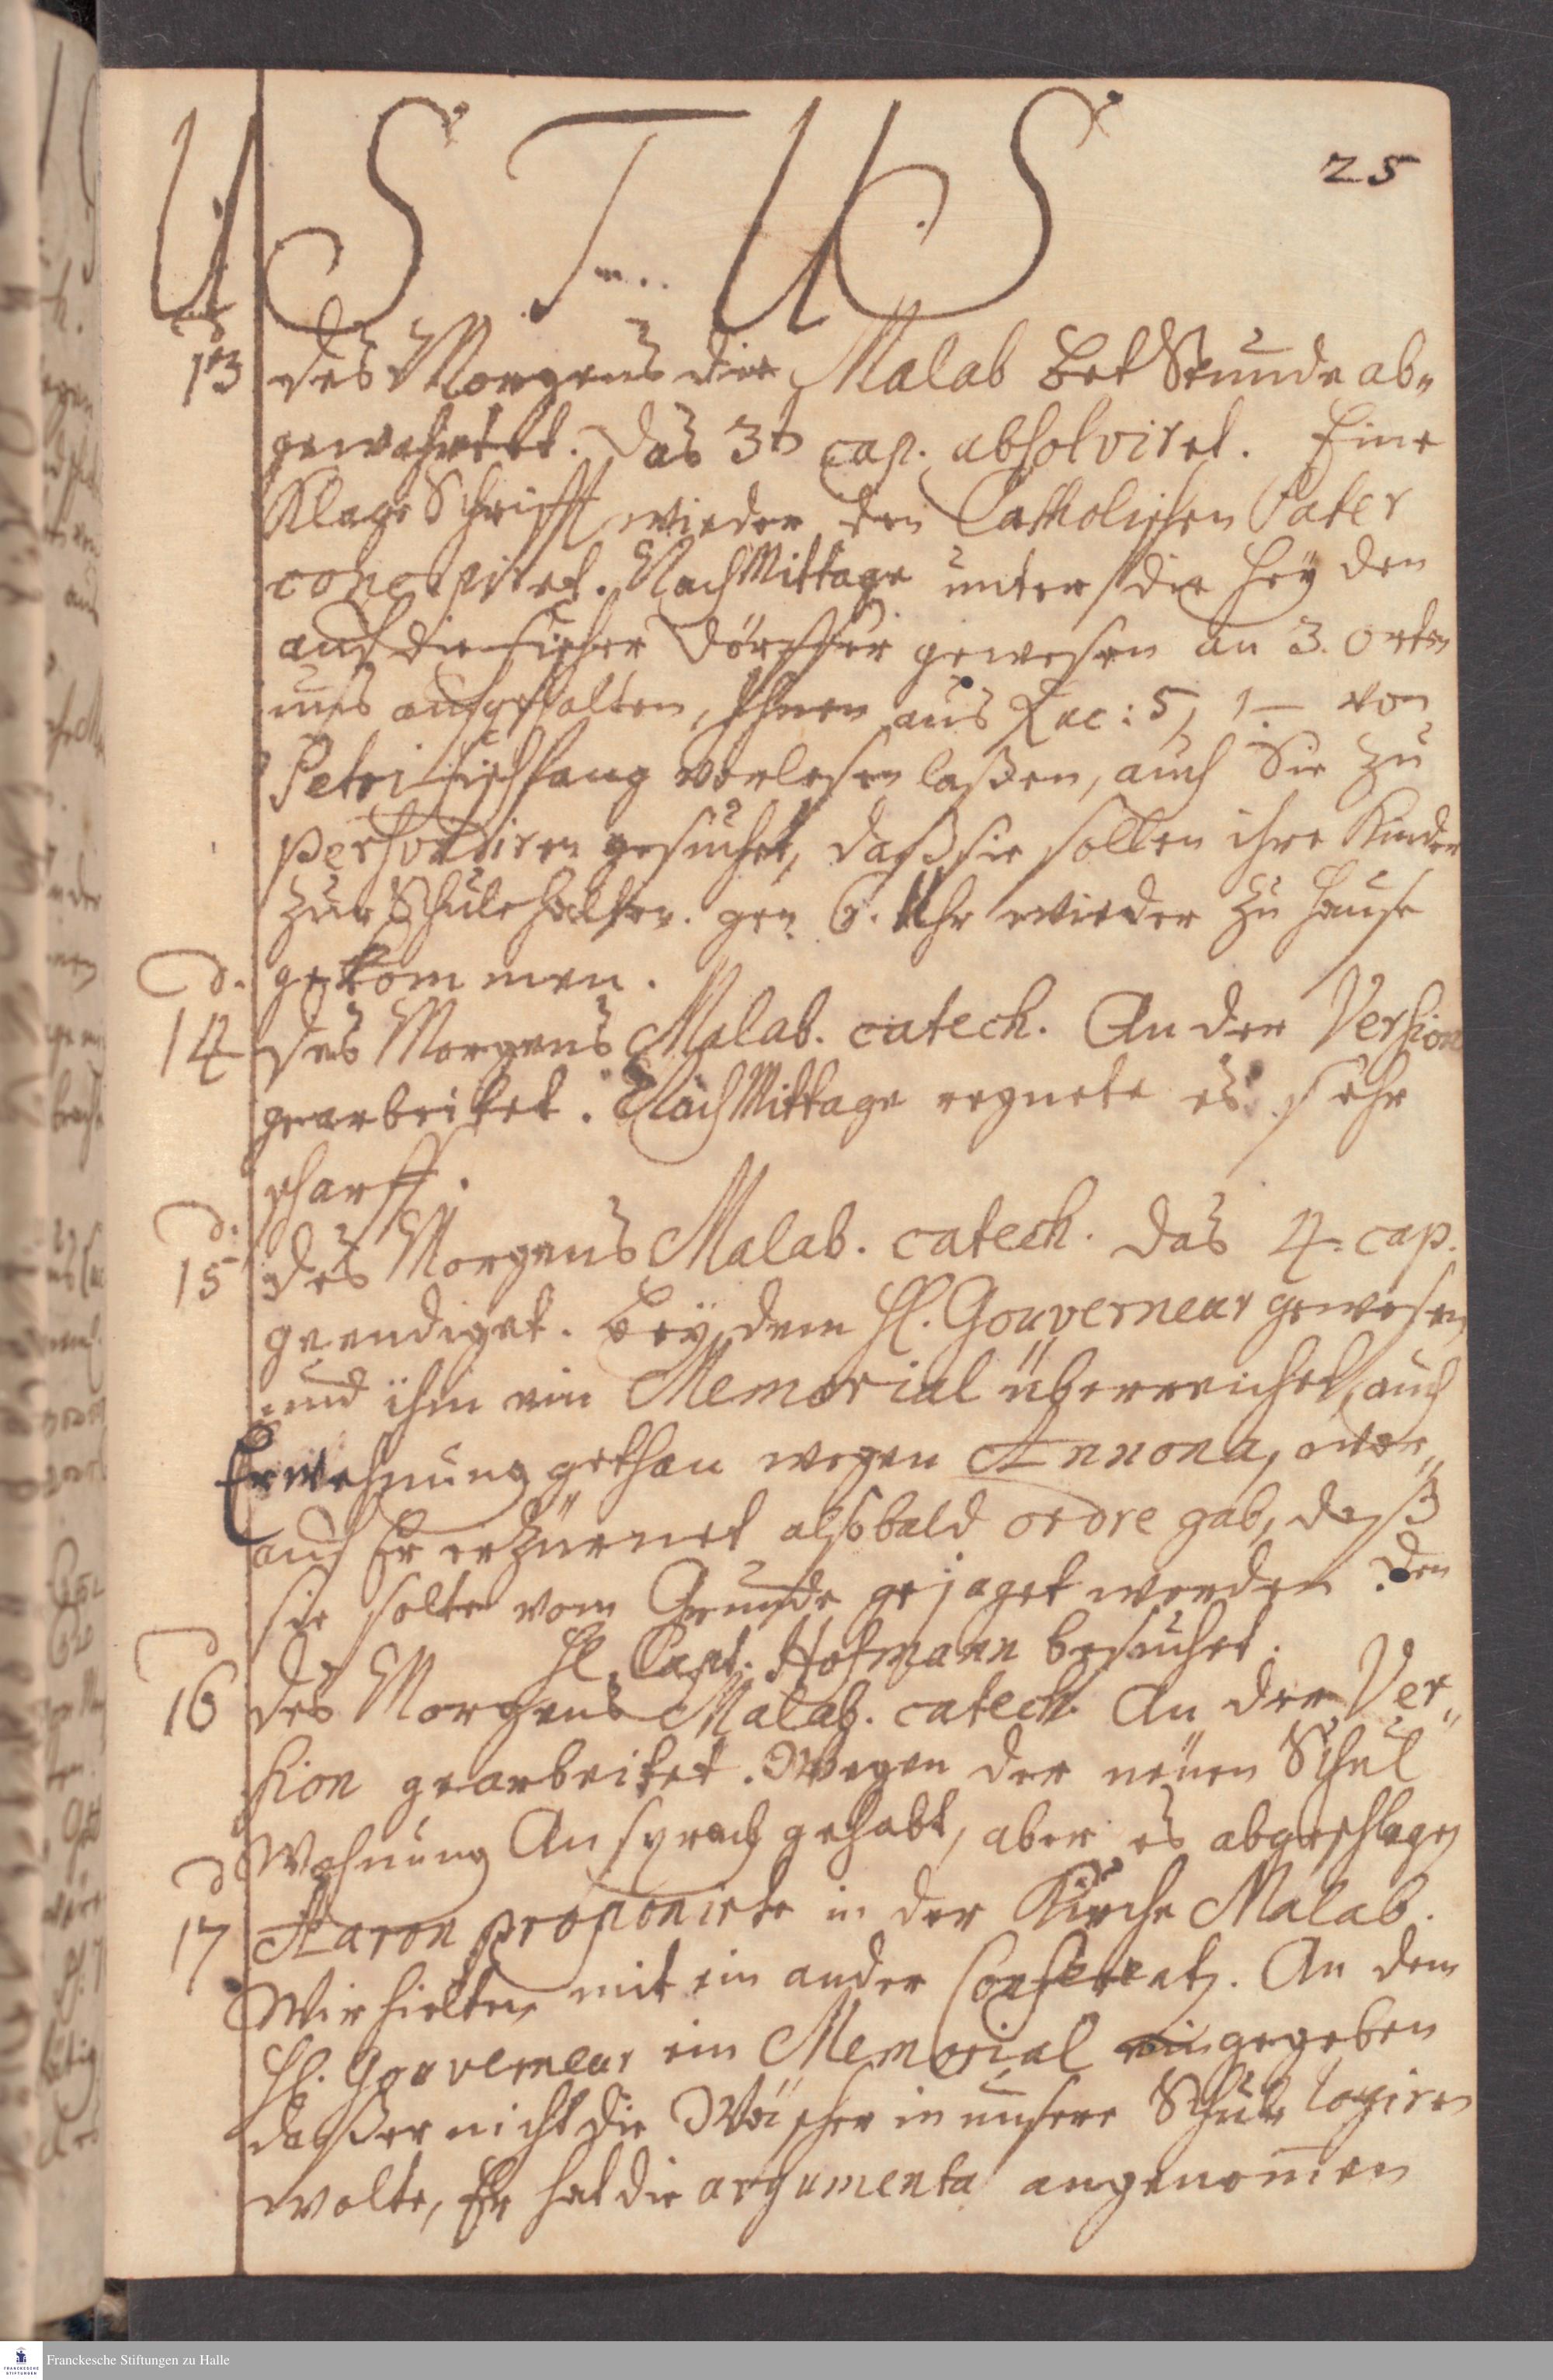 USTUS
25
d.
13 des Morgens die Malab Bet Stunde ab„
gewahrtet. Das 3te cap. absolviret. Eine
Klage Schrifft wieder den Catholischen Pater
concipiret. NachMittage unter die Heÿden
auf die fischer Dörffer gewesen an 3. orten
uns aufgehalten, Ihnen aus Luc: 5, 1.– von
Petri fischfang vorlesen laßen, auch Sie zu
persuadiren gesuchet, daß sie sollen ihre Kinder
zur Schule halten. gen 6. Uhr wieder zu Hause
d. gekommen.
14 des Morgens Malab. catech. An der Version
gearbeitet. NachMittage regnete es sehr
scharff.
d.
15 des Morgens Malab. catech. das 4. cap.
geendiget. Beÿ dem H. Gouverneur gewesen
und ihm ein Memorial überreichet, auch
Erwehnung gethan wegen Annona, wor„
auf Er erzürnet alsobald ordre gab, daß
sie solte vom Grunde gejaget werden. Den
H. Capt. Hofmann besuchet.
d
16 des Morgens Malab. catech. An der Ver„
sion gearbeitet. Wegen der neüen Schul
Wohnung Ansprach gehabt, aber es abgeschlagen
d
17 Aaron proponirte in der Kirche Malab.
Wir hielten mit ein ander Conferentz. An dem
H. Gouverneur ein Memorial eingegeben
daß er nicht die Wäscher in unsere Schule logiren
wolte, Er hat die argumenta angenom̄en
Franckesche Stiftungen zu Halle